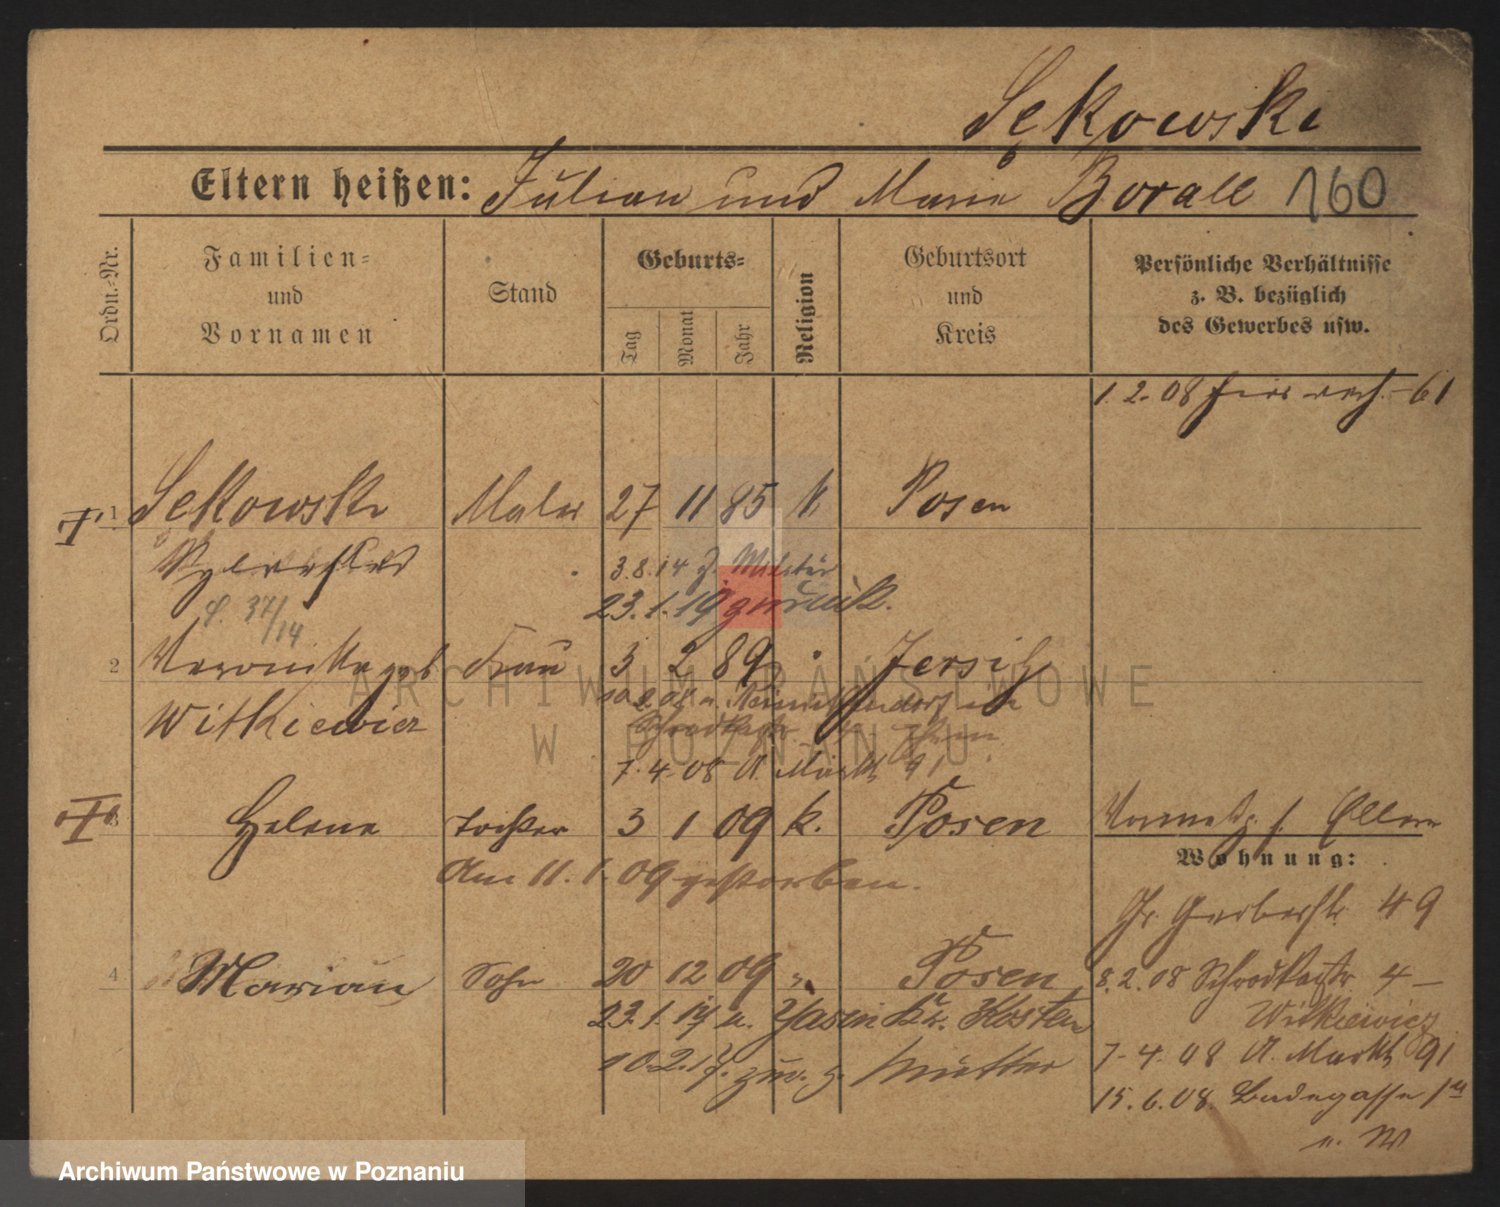 Sękowski
Eltern heißen: Julian und Marie Borall 160
Ordn.-Nr.
Familien- und Vornamen
Stand
Geburts-
Tag
Monat
Jahr
Religion
Geburtsort und Kreis
Persönliche Verhältnisse z. B. bezüglich des Gewerbes usw.
1.2.08 61
1 Sękowski Maler 27 11 85 k Posen
3.8.14 z. Militär
23.1.19 zurück.
37/14
2 Veronika geb Frau 3 2 89 Jersitz
Witkiewicz
7.4.08 A. Markt 91
3 Helene Tochter 3 1 09 k. Posen
Am 11.1.09 gestorben.
Wohnung:
Gr. Gerberstr. 49
4 Marian Sohn 20 12 09 " Posen
8.2.08 Schrodkastr. 4 –
Witkiewicz
23.1.17 n. Kr. Kosten
7.4.08 A. Markt 91
10.2.17. zur. z. Mutter
15.6.08. Badegasse
u. W
ARCHIWUM PAŃSTWOWE
W POZNANIU
Archiwum Państwowe w Poznaniu